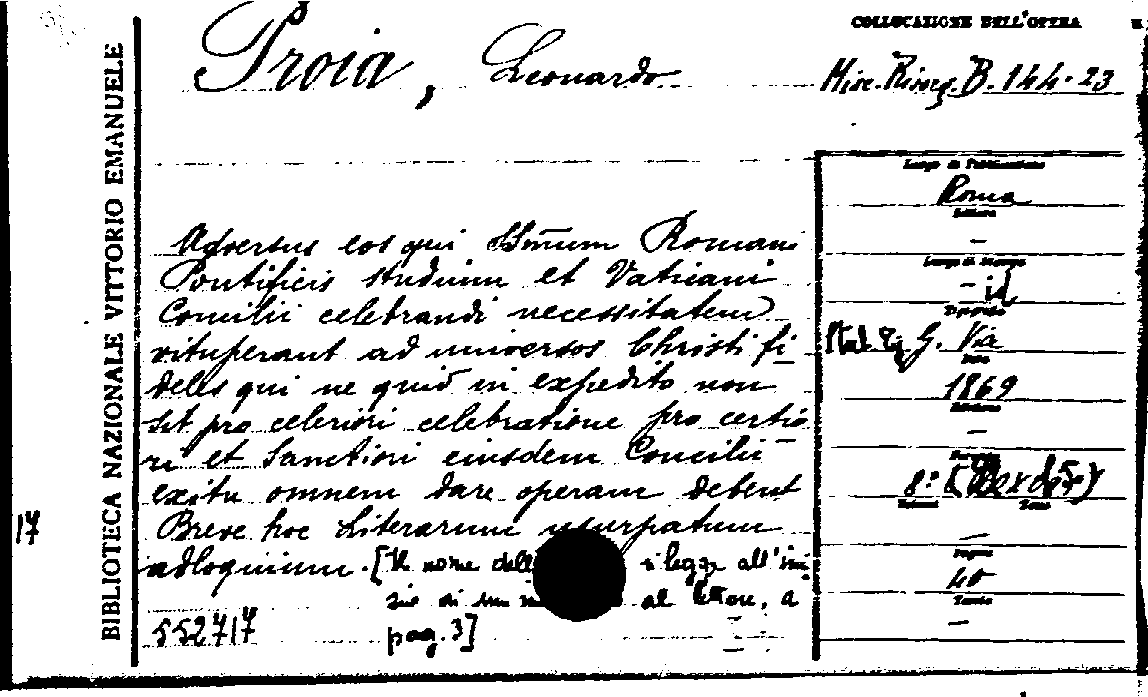 COLLOCAZIONE DELL'OPERA
Proia, Leonardo
Misc. Risorg. B. 144.23
BIBLIOTECA NAZIONALE VITTORIO EMANUELE
Luogo di Pubblicazione
Roma
Editore
–
Luogo di Stampa
– id
Tipografo
Stab. Tip. G. Via
Data
1869
Edizione
–
Formato
8º
Volumi
Tomo
–
Pagine
40
Tavole
–
Adversus eos qui Romani
Pontificis studium et Vaticani
Concilii celebrandi necessitatem
vituperant ad universos Christi fi-
deles qui ne quid in expedito non
sit pro celeriori celebratione pro certio
ri et sanctiori eiusdem Concilii
exitu omnem dare operam debent
Breve hoc Literarum usurpatum
adloquium. [Il nome dell si legge all'ini
zio di un al lettore, a
pag. 3]
552717
17